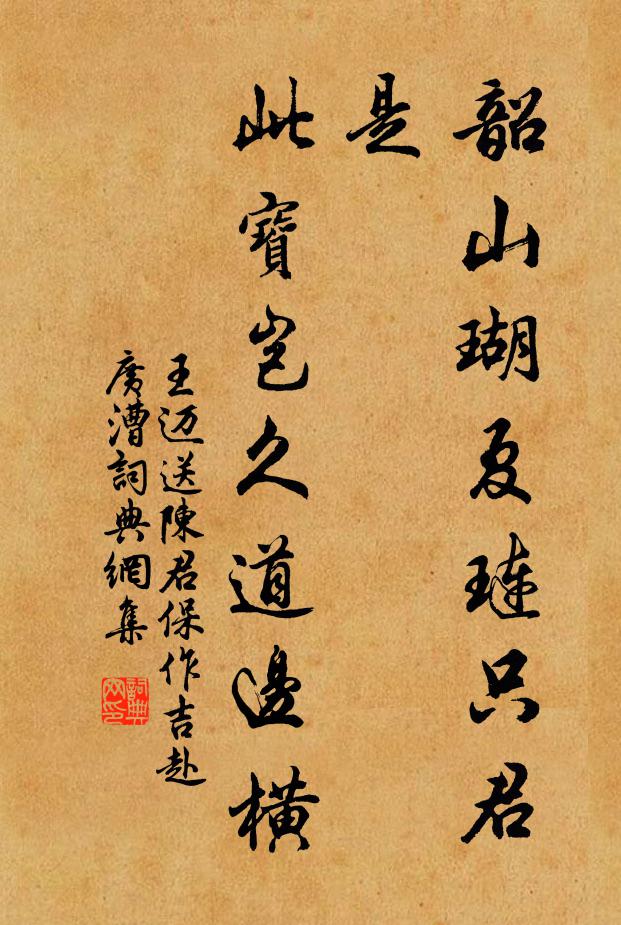 韶山瑚夏璉只君
是
此寶豈久道邊橫
王迈送陳君保作吉赴
廣漕詞典網集
詞典网印